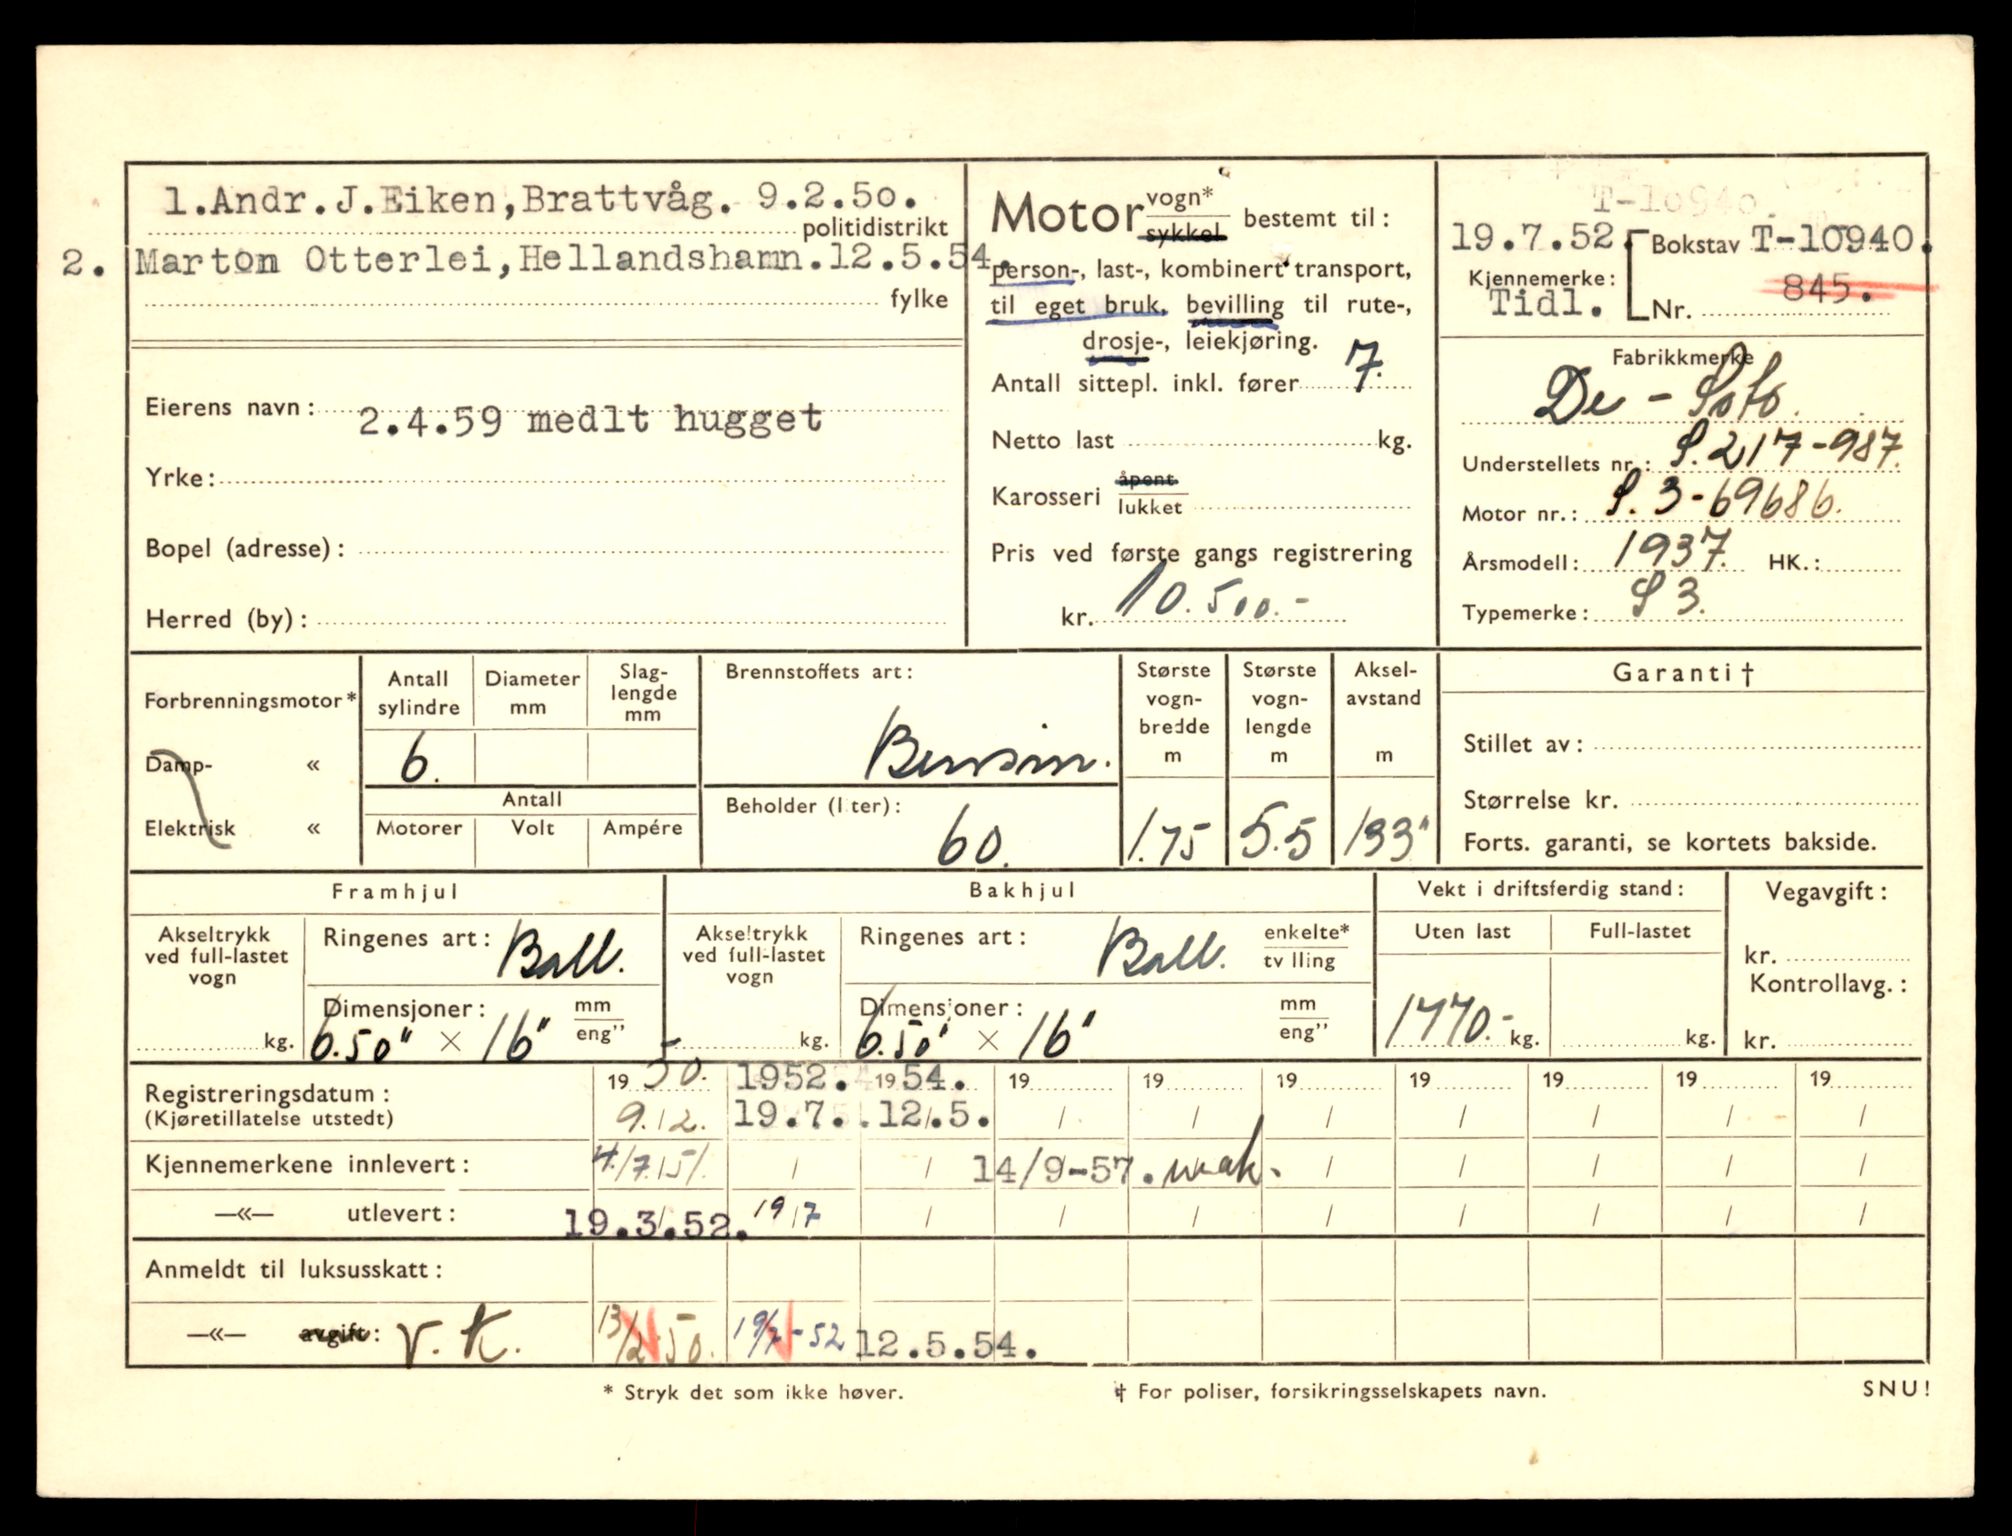 1.Andr.J.Eiken,Brattvåg. 9.2.50.
politidistrikt
2. Marton Otterlei,Hellandshamn.12.5.54.
fylke
Eierens navn: 2.4.59 medlt hugget
Yrke:
Bopel (adresse):
Herred (by):
Motor vogn* sykkel bestemt til:
person-, last-, kombinert transport,
til eget bruk, bevilling til rute-,
drosje-, leiekjøring.
Antall sittepl. inkl. fører 7.
Netto last kg.
Karosseri åpent lukket
Pris ved første gangs registrering
kr. 10.500.-
T-10940.
19.7.52. Bokstav T-10940.
Kjennemerke:
Tidl. Nr. 845.
Fabrikkmerke
De - Soto.
Understellets nr.: S.217-987.
Motor nr.: S.3-69686.
Årsmodell: 1937. HK.:
Typemerke: S 3.
Forbrenningsmotor*
Damp- «
Elektrisk «
Antall sylindre
Diameter mm
Slag-lengde mm
6.
Antall
Motorer Volt Ampére
Brennstoffets art:
Bensin.
Beholder (liter):
60.
Største vogn-bredde m
1.75
Største vogn-lengde m
5.5
Aksel-avstand m
133"
Garanti†
Stillet av:
Størrelse kr.
Forts. garanti, se kortets bakside.
Framhjul
Akseltrykk ved full-lastet vogn
kg.
Ringenes art: Ball.
Dimensjoner: mm eng"
6.50" × 16"
Bakhjul
Akseltrykk ved full-lastet vogn
kg.
Ringenes art: Ball. enkelte* tvilling
Dimensjoner: mm eng"
6.50" × 16"
Vekt i driftsferdig stand:
Uten last Full-lastet
1770.- kg. kg.
Vegavgift:
kr.
Kontrollavg.:
kr.
Registreringsdatum: 19 50. 1952. 19 54. 19 19 19 19 19 19 19
(Kjøretillatelse utstedt) 9./2. 19.7. 12/.5. / / / / / / /
Kjennemerkene innlevert: 4./7.51. / / 14/9-57. vrak. / / / / /
—«— utlevert: 19.3.52. 19/7 / / / / / / / /
Anmeldt til luksusskatt:
—«— avgift: V.K. 13/2 50. 19/7-52 12.5.54.
* Stryk det som ikke høver.
† For poliser, forsikringsselskapets navn.
SNU!